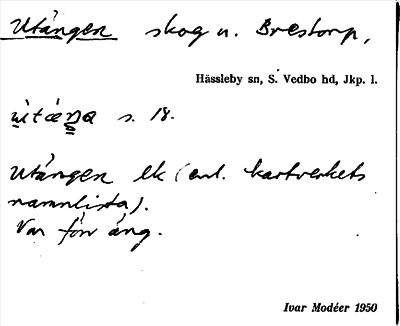 Utängen skog u. Brestorp,
Hässleby sn, S. Vedbo hd, Jkp. l.
s. 18.
Utängen ek (enl. kartverkets
namnlista).
Var förr äng.
Ivar Modéer 1950